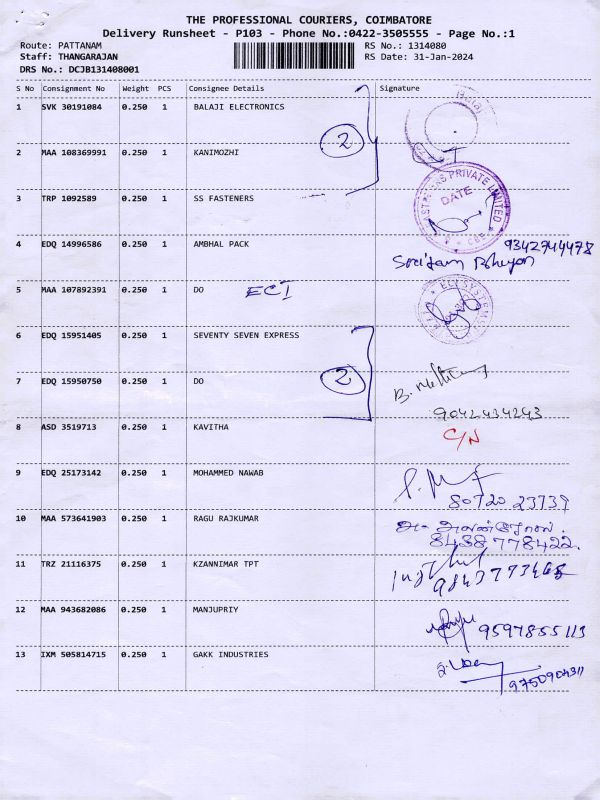 THE PROFESSIONAL COURIERS, COIMBATORE
Delivery Runsheet - P103 - Phone No.:0422-3505555 - Page No.:1
Route: PATTANAM
RS No.: 1314080
Staff: THANGARAJAN
RS Date: 31-Jan-2024
DRS No.: DCJB131408001
S No Consignment No Weight PCS Consignee Details Signature
1 SVK 30191084 0.250 1 BALAJI ELECTRONICS
2
2 MAA 108369991 0.250 1 KANIMOZHI
3 TRP 1092589 0.250 1 SS FASTENERS
PRIVATE LIMITED
DATE
4 EDQ 14996586 0.250 1 AMBHAL PACK
9342744478
5 MAA 107892391 0.250 1 DO ECI
ECI SYSTEMS
6 EDQ 15951405 0.250 1 SEVENTY SEVEN EXPRESS
2
7 EDQ 15950750 0.250 1 DO
9042434243
8 ASD 3519713 0.250 1 KAVITHA C/N
9 EDQ 25173142 0.250 1 MOHAMMED NAWAB
80720 23739
10 MAA 573641903 0.250 1 RAGU RAJKUMAR
8438 778422.
11 TRZ 21116375 0.250 1 KZANNIMAR TPT
9843773468
12 MAA 943682086 0.250 1 MANJUPRIY
9597855113
13 IXM 505814715 0.250 1 GAKK INDUSTRIES
9750904311